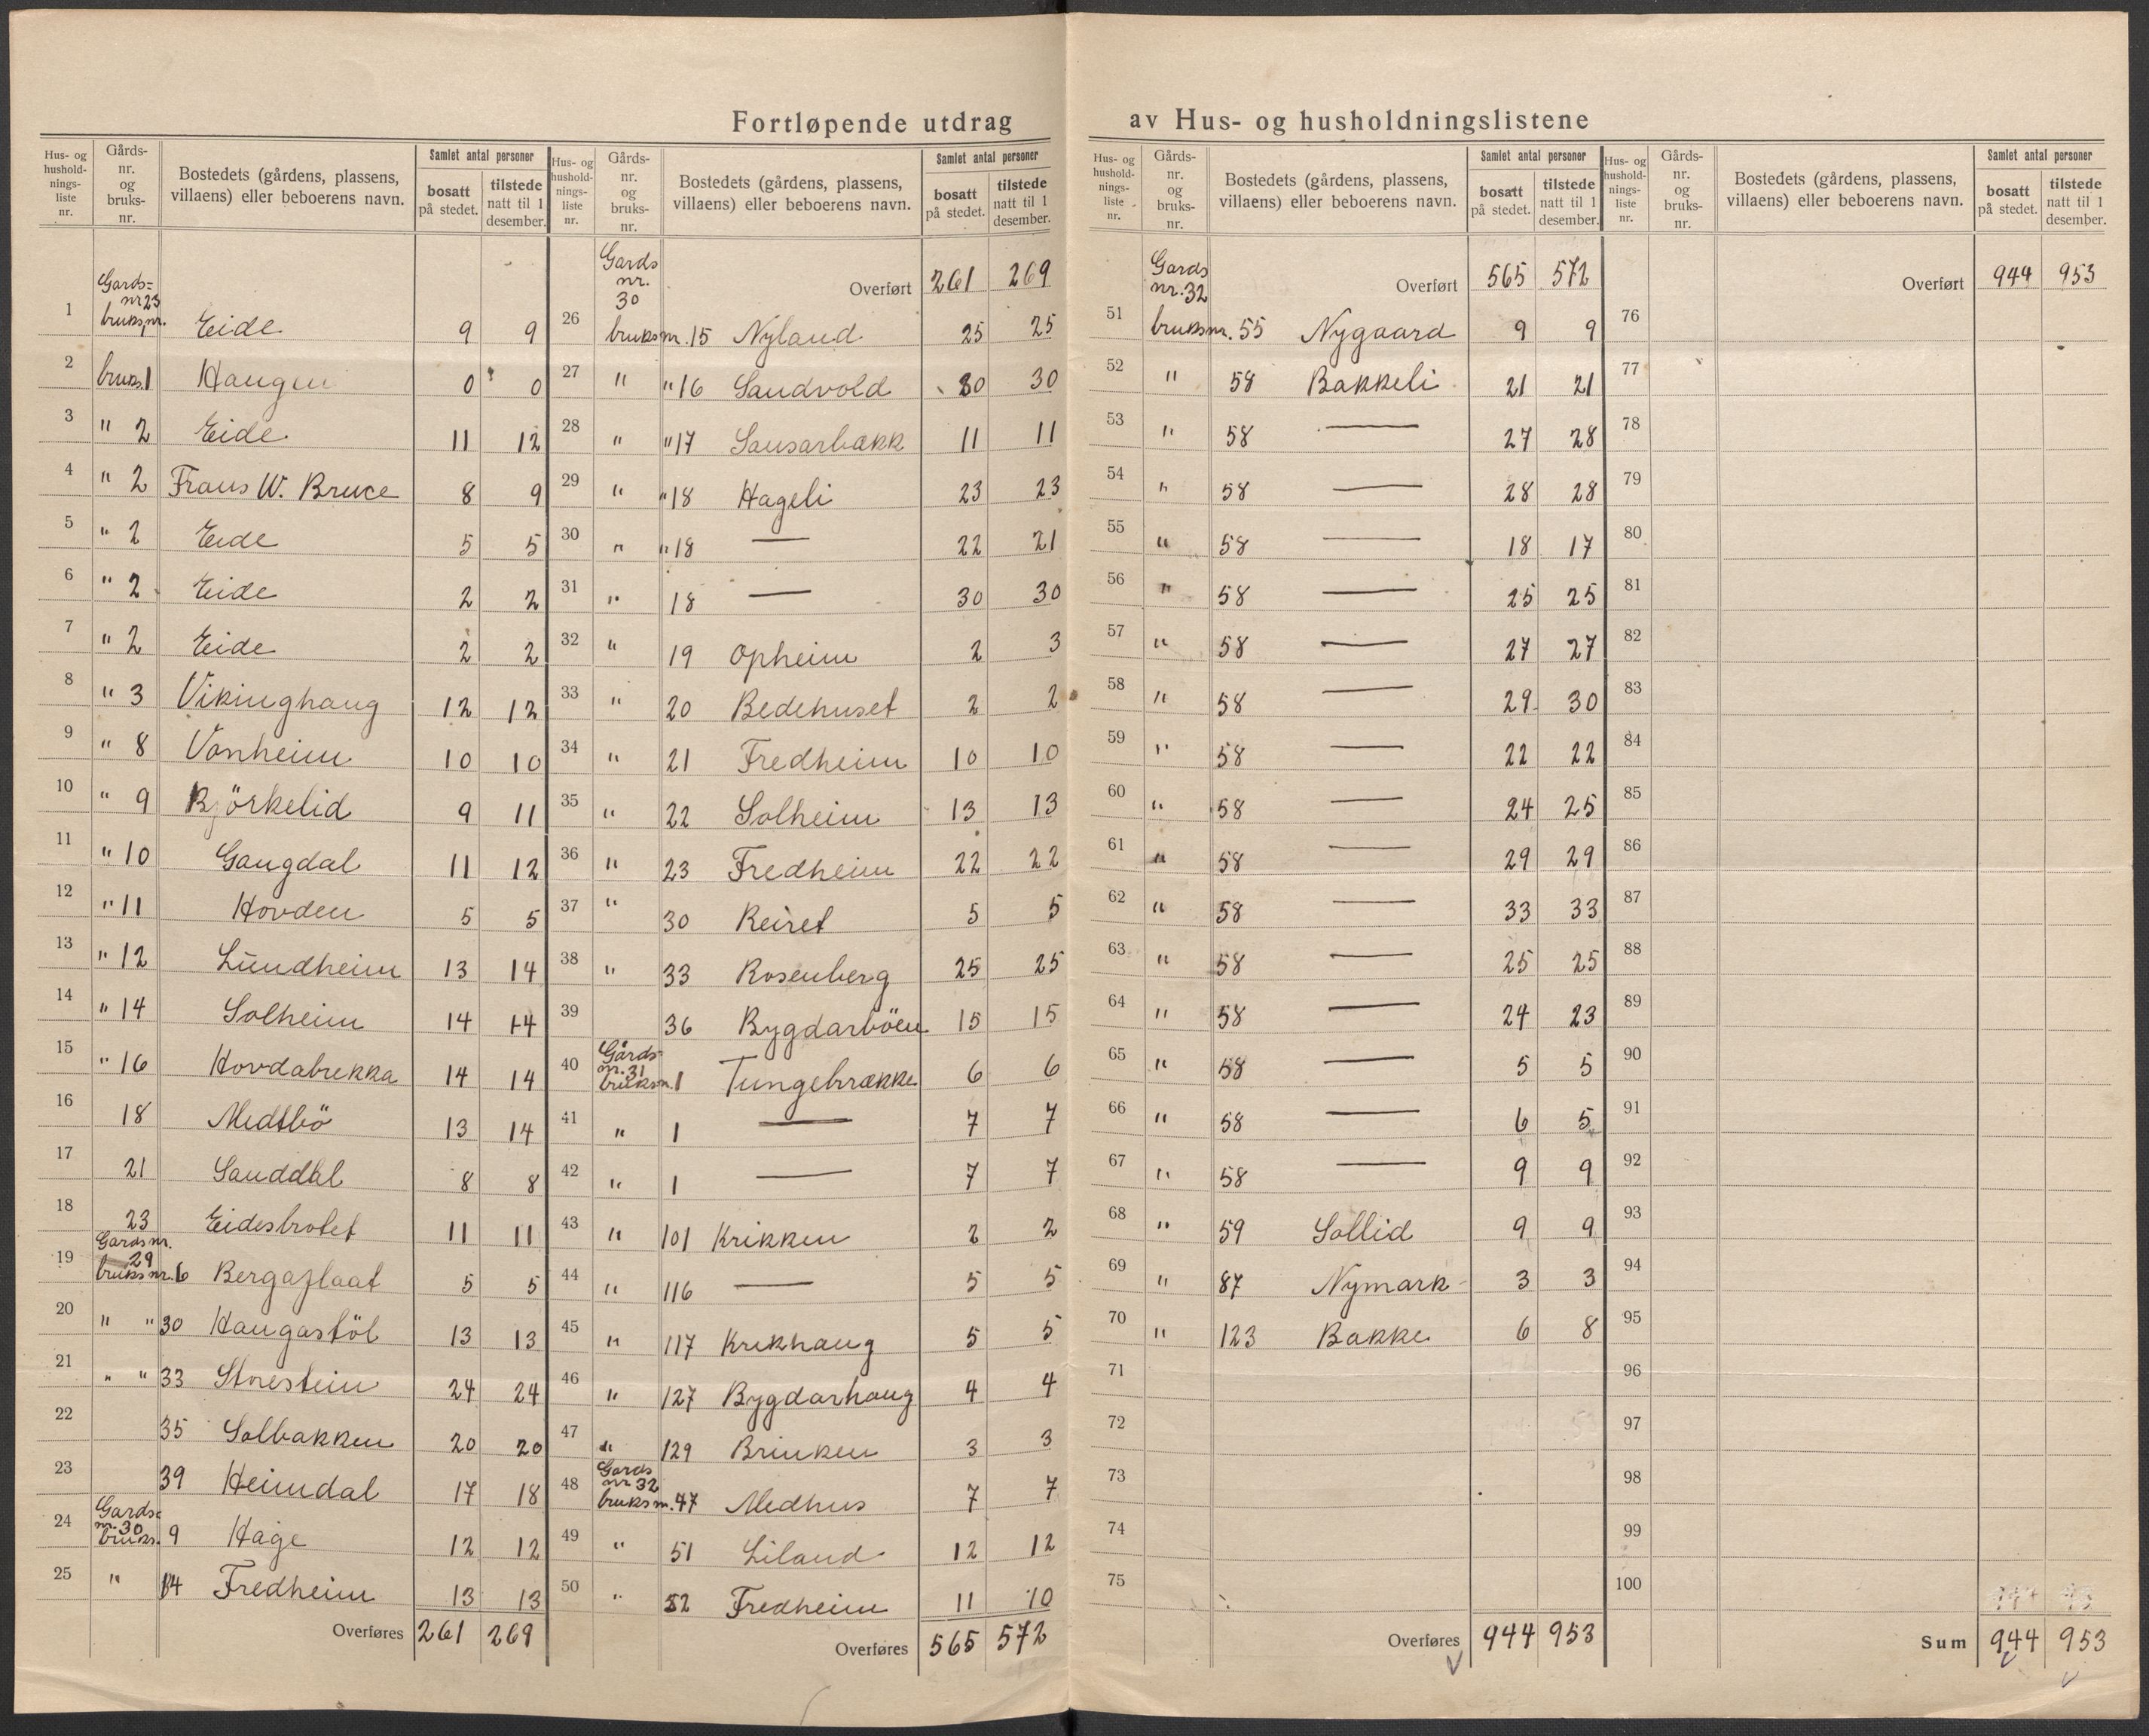 Fortløpende utdrag av Hus- og husholdningslistene
Hus- og hushold-nings-liste nr. Gårds-nr. og bruks-nr. Bostedets (gårdens, plassens, villaens) eller beboerens navn. Samlet antal personer bosatt på stedet. tilstede natt til 1 desember.
Gards= nr 23
1 bruksnr. 1 Eide 9 9
2 bruks. 1 Haugen 0 0
3 " 2 Eide 11 12
4 " 2 Frans W. Bruce 8 9
5 " 2 Eide 5 5
6 " 2 Eide 2 2
7 " 2 Eide 2 2
8 " 3 Vikinghaug 12 12
9 " 8 Vonheim 10 10
10 " 9 Björkelid 9 11
11 " 10 Gaugdal 11 12
12 " 11 Hovden 5 5
13 " 12 Lundheim 13 14
14 " 14 Solheim 14 14
15 " 16 Hovdabrekka 14 14
16 18 Medtbö 13 14
17 21 Sanddal 8 8
18 23 Eidesbrotet 11 11
Gards nr. 29
19 bruks nr. 6 Bergaflaat 5 5
20 " " 30 Haugastöl 13 13
21 " " 33 Storestein 24 24
22 35 Solbakken 20 20
23 39 Heimdal 17 18
Gards= nr. 30
24 bruks. 9 Hage 12 12
25 " 14 Fredheim 13 13
Overføres 261 269
Hus- og hushold-nings-liste nr. Gårds-nr. og bruks-nr. Bostedets (gårdens, plassens, villaens) eller beboerens navn. Samlet antal personer bosatt på stedet. tilstede natt til 1 desember.
Gards nr. 30 Overført 261 269
26 bruksnr. 15 Nyland 25 25
27 " " 16 Sandvold 30 30
28 " " 17 Sausarbakk 11 11
29 " " 18 Hageli 23 23
30 " " 18 — 22 21
31 " 18 — 30 30
32 " 19 Opheim 2 3
33 " 20 Bedehuset 2 2
34 " 21 Fredheim 10 10
35 " 22 Solheim 13 13
36 " 23 Fredheim 22 22
37 " 30 Reiret 5 5
38 " 33 Rosenberg 25 25
39 36 Bygdarböen 15 15
Gårds- nr. 31
40 bruksn. 1 Tungebrække 6 6
41 " 1 — 7 7
42 " 1 — 7 7
43 " 101 Krikken 2 2
44 " 116 — 5 5
45 " 117 Krikhaug 5 5
46 " 127 Bygdarhaug 4 4
47 " 129 Brinken 3 3
Gards nr 32
48 bruksn. 47 Medhus 7 7
49 " 51 Liland 12 12
50 " 52 Fredheim 11 10
Overføres 565 572
Hus- og hushold-nings-liste nr. Gårds-nr. og bruks-nr. Bostedets (gårdens, plassens, villaens) eller beboerens navn. Samlet antal personer bosatt på stedet. tilstede natt til 1 desember.
Gards nr. 32 Overført 565 572
51 bruksnr. 55 Nygaard 9 9
52 " 58 Bakkeli 21 21
53 " 58 — 27 28
54 " 58 — 28 28
55 " 58 — 18 17
56 " 58 — 25 25
57 " 58 — 27 27
58 " 58 — 29 30
59 " 58 — 22 22
60 " 58 — 24 25
61 " 58 — 29 29
62 " 58 — 33 33
63 " 58 — 25 25
64 " 58 — 24 23
65 " 58 — 5 5
66 " 58 — 6 5
67 " 58 — 9 9
68 " 59 Sollid 9 9
69 " 87 Nymark 3 3
70 " 123 Bakke 6 8
71
72
73
74
75
Overføres 944 953
Hus- og hushold-nings-liste nr. Gårds-nr. og bruks-nr. Bostedets (gårdens, plassens, villaens) eller beboerens navn. Samlet antal personer bosatt på stedet. tilstede natt til 1 desember.
Overført 944 953
76
77
78
79
80
81
82
83
84
85
86
87
88
89
90
91
92
93
94
95
96
97
98
99
100
Sum 944 953